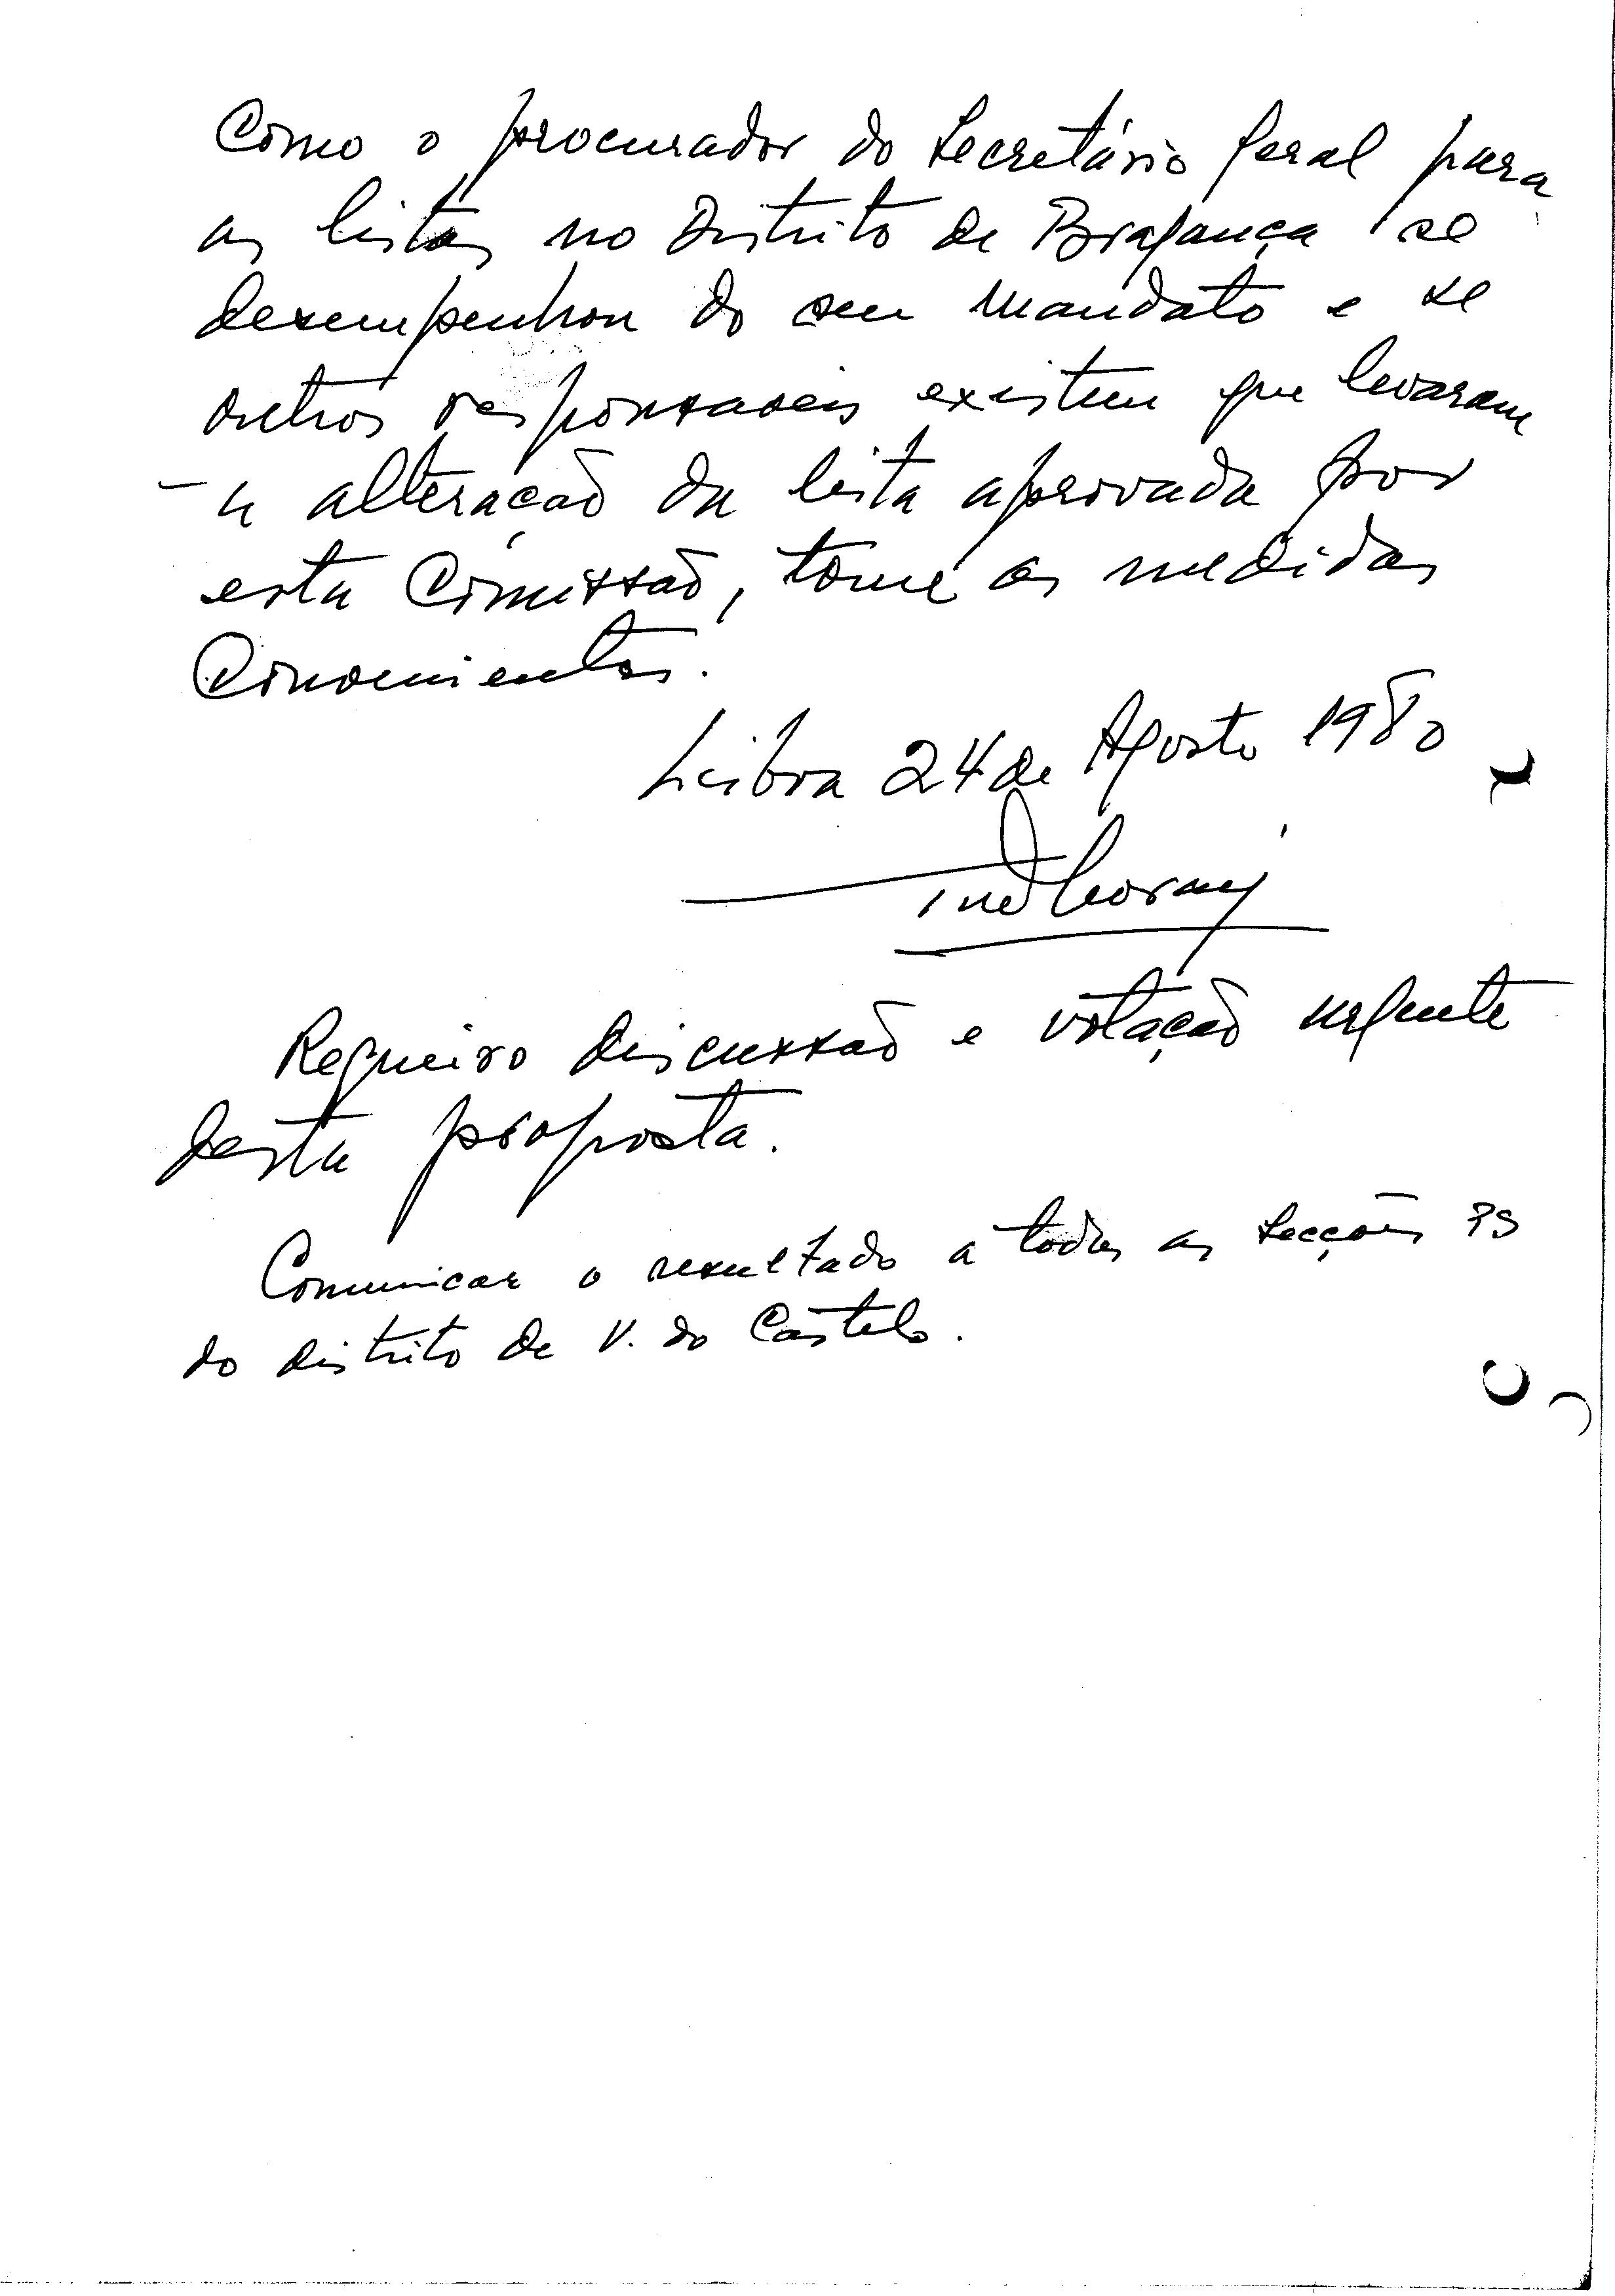 Como o procurador do Secretário Geral para
as listas no Distrito de Bragança se
desempenhou do seu mandato e se
outros responsaveis existem que levaram
a alteração da lista aprovada por
esta Comissão, tome as medidas
convenientes.
Lisboa 24 de Agosto 1980
Requeiro discussão e votação urgente
desta proposta.
Comunicar o resultado a todas as Secções PS
do distrito de V. do Castelo.